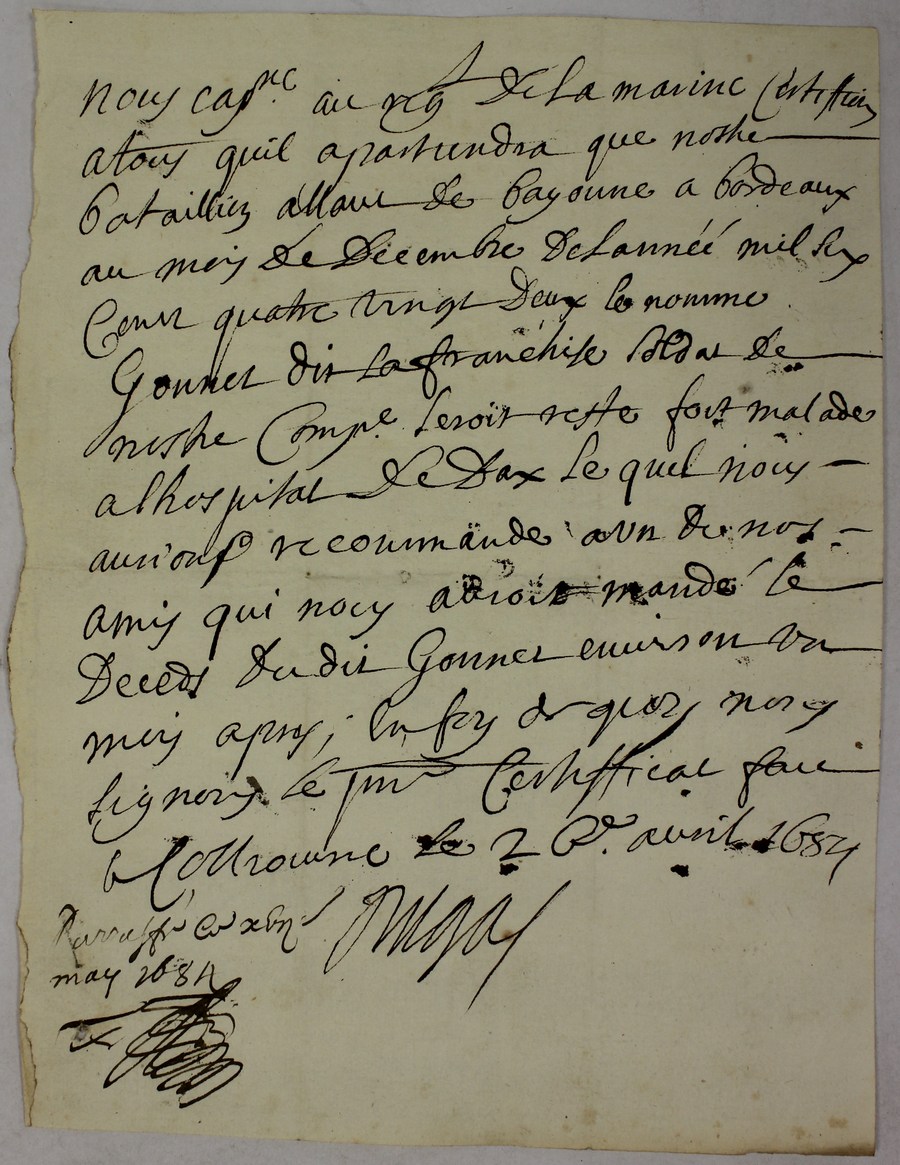 nous capne au regt De La marine Certiffions
atous quil apartiendra que nostre
bataillion allant de bayonne a bordeaux
au mois de Decembre De Lannéé mil six
Cent quatre vingt Deux le nomme
Gonnet dit La franchise soldat de
nostre Compe seroit reste fort malade
a lhospital de Dax le quel nous
aurions recommande a vn de nos
amis qui nous auroit mandé le
Deceds Du dit Gonnet enuiron vn
mois apres; en foy de quoy nous
signons le pnt Certifficat fait
a le 2 6e. auril 1684
Paraffé ce
may 1684